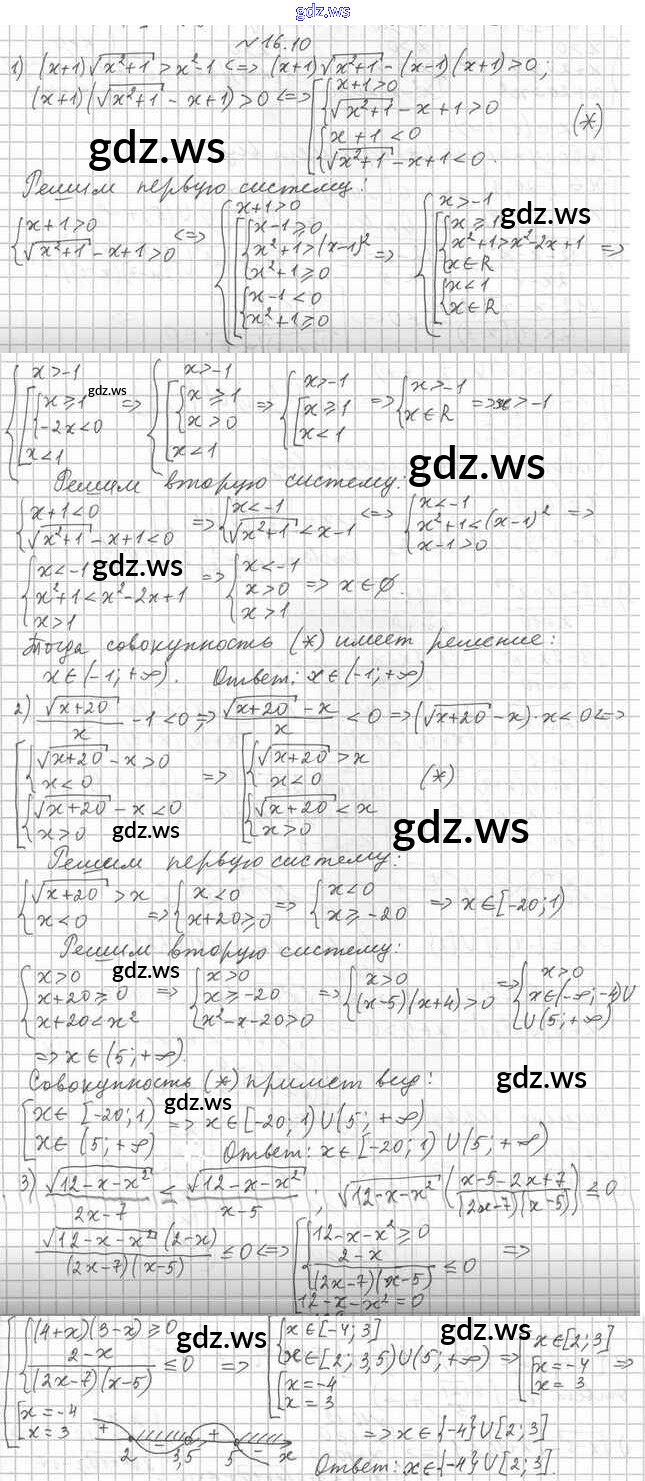 gdz.ws
№16.10
1) (x+1)√(x²+1) > x²-1 <=> (x+1)√(x²+1) - (x-1)(x+1)>0;
(x+1)(√(x²+1) - x+1)>0 <=> [{x+1>0
{√(x²+1) - x+1>0
{x+1<0
{√(x²+1) - x+1<0. (*)
gdz.ws
Решим первую систему:
{x+1>0
{√(x²+1) - x+1>0 <=> {x+1>0
[{x-1≥0
{x²+1>(x-1)²
{x²+1≥0
{x-1<0
{x²+1≥0 => {x>-1
[{x≥1
{x²+1>x²-2x+1
{x∈R
{x<1
{x∈R =>
gdz.ws
{x>-1
[{x≥1
{-2x<0
[x<1 => {x>-1
[{x≥1
{x>0
[x<1 => {x>-1
[x≥1
[x<1 => {x>-1
{x∈R => x>-1
gdz.ws
gdz.ws
Решим вторую систему:
{x+1<0
{√(x²+1) - x+1<0 => {x<-1
{√(x²+1) < x-1 <=> {x<-1
{x²+1<(x-1)²
{x-1>0 =>
gdz.ws
{x<-1
{x²+1<x²-2x+1
{x>1 => {x<-1
{x>0
{x>1 => x∈∅.
Тогда совокупность (*) имеет решение:
x∈(-1;+∞). Ответ: x∈(-1;+∞)
2) √(x+20)/x - 1<0 => (√(x+20) - x)/x < 0 => (√(x+20) - x)·x<0 <=>
[{√(x+20) - x>0
{x<0
{√(x+20) - x<0
{x>0 => [{√(x+20) > x
{x<0
{√(x+20) < x
{x>0 (*)
gdz.ws
gdz.ws
Решим первую систему:
{√(x+20) > x
{x<0 => {x<0
{x+20≥0 => {x<0
{x≥-20 => x∈[-20;1)
Решим вторую систему:
gdz.ws
{x>0
{x+20≥0
{x+20<x² => {x>0
{x≥-20
{x²-x-20>0 => {x>0
{(x-5)(x+4)>0 => {x>0
{x∈(-∞;-4)∪
∪(5;+∞)
=> x∈(5;+∞).
Совокупность (*) примет вид:
gdz.ws
gdz.ws
[x∈[-20;1)
[x∈(5;+∞) => x∈[-20;1)∪(5;+∞)
Ответ: x∈[-20;1)∪(5;+∞)
3) √(12-x-x²)/(2x-7) ≤ √(12-x-x²)/(x-5); √(12-x-x²)((x-5-2x+7)/((2x-7)(x-5))) ≤0
√(12-x-x²)(2-x)/((2x-7)(x-5)) ≤0 <=> [{12-x-x²≥0
{(2-x)/((2x-7)(x-5)) ≤0
[12-x-x²=0 =>
[{(4+x)(3-x)≥0
{(2-x)/((2x-7)(x-5)) ≤0
[x=-4
[x=3 => [{x∈[-4;3]
{x∈[2;3,5)∪(5;+∞)
[x=-4
[x=3 => [x∈[2;3]
[x=-4
[x=3 =>
gdz.ws
gdz.ws
+ - + -
2 3,5 5 x
=> x∈{-4}∪[2;3]
Ответ: x∈{-4}∪[2;3].
gdz.ws